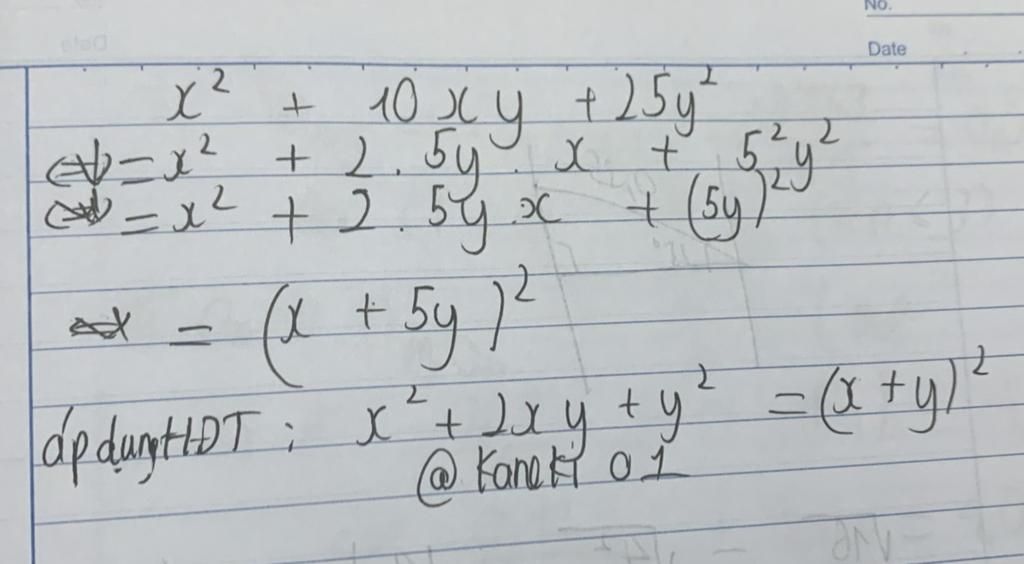 No.
Date
x² + 10xy + 25y²
= x² + 2 . 5y . x + 5²y²
= x² + 2 . 5y . x + (5y)²
= (x + 5y)²
áp dụng HDT : x² + 2xy + y² = (x + y)²
@ Kaneki 01